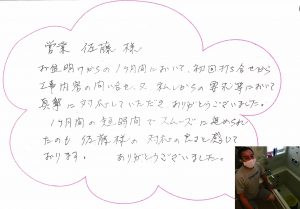 営業 佐藤 様
お盆明けからの1ヶ月間において、初回打ち合せから
工事内容の問い合せ、又 私しからの要求等において
真摯に対応していただき ありがとうございました。
1ヶ月間の短時間でスムーズに進められ
たのも 佐藤様の対応の良さと感じて
おります。 ありがとうございました。